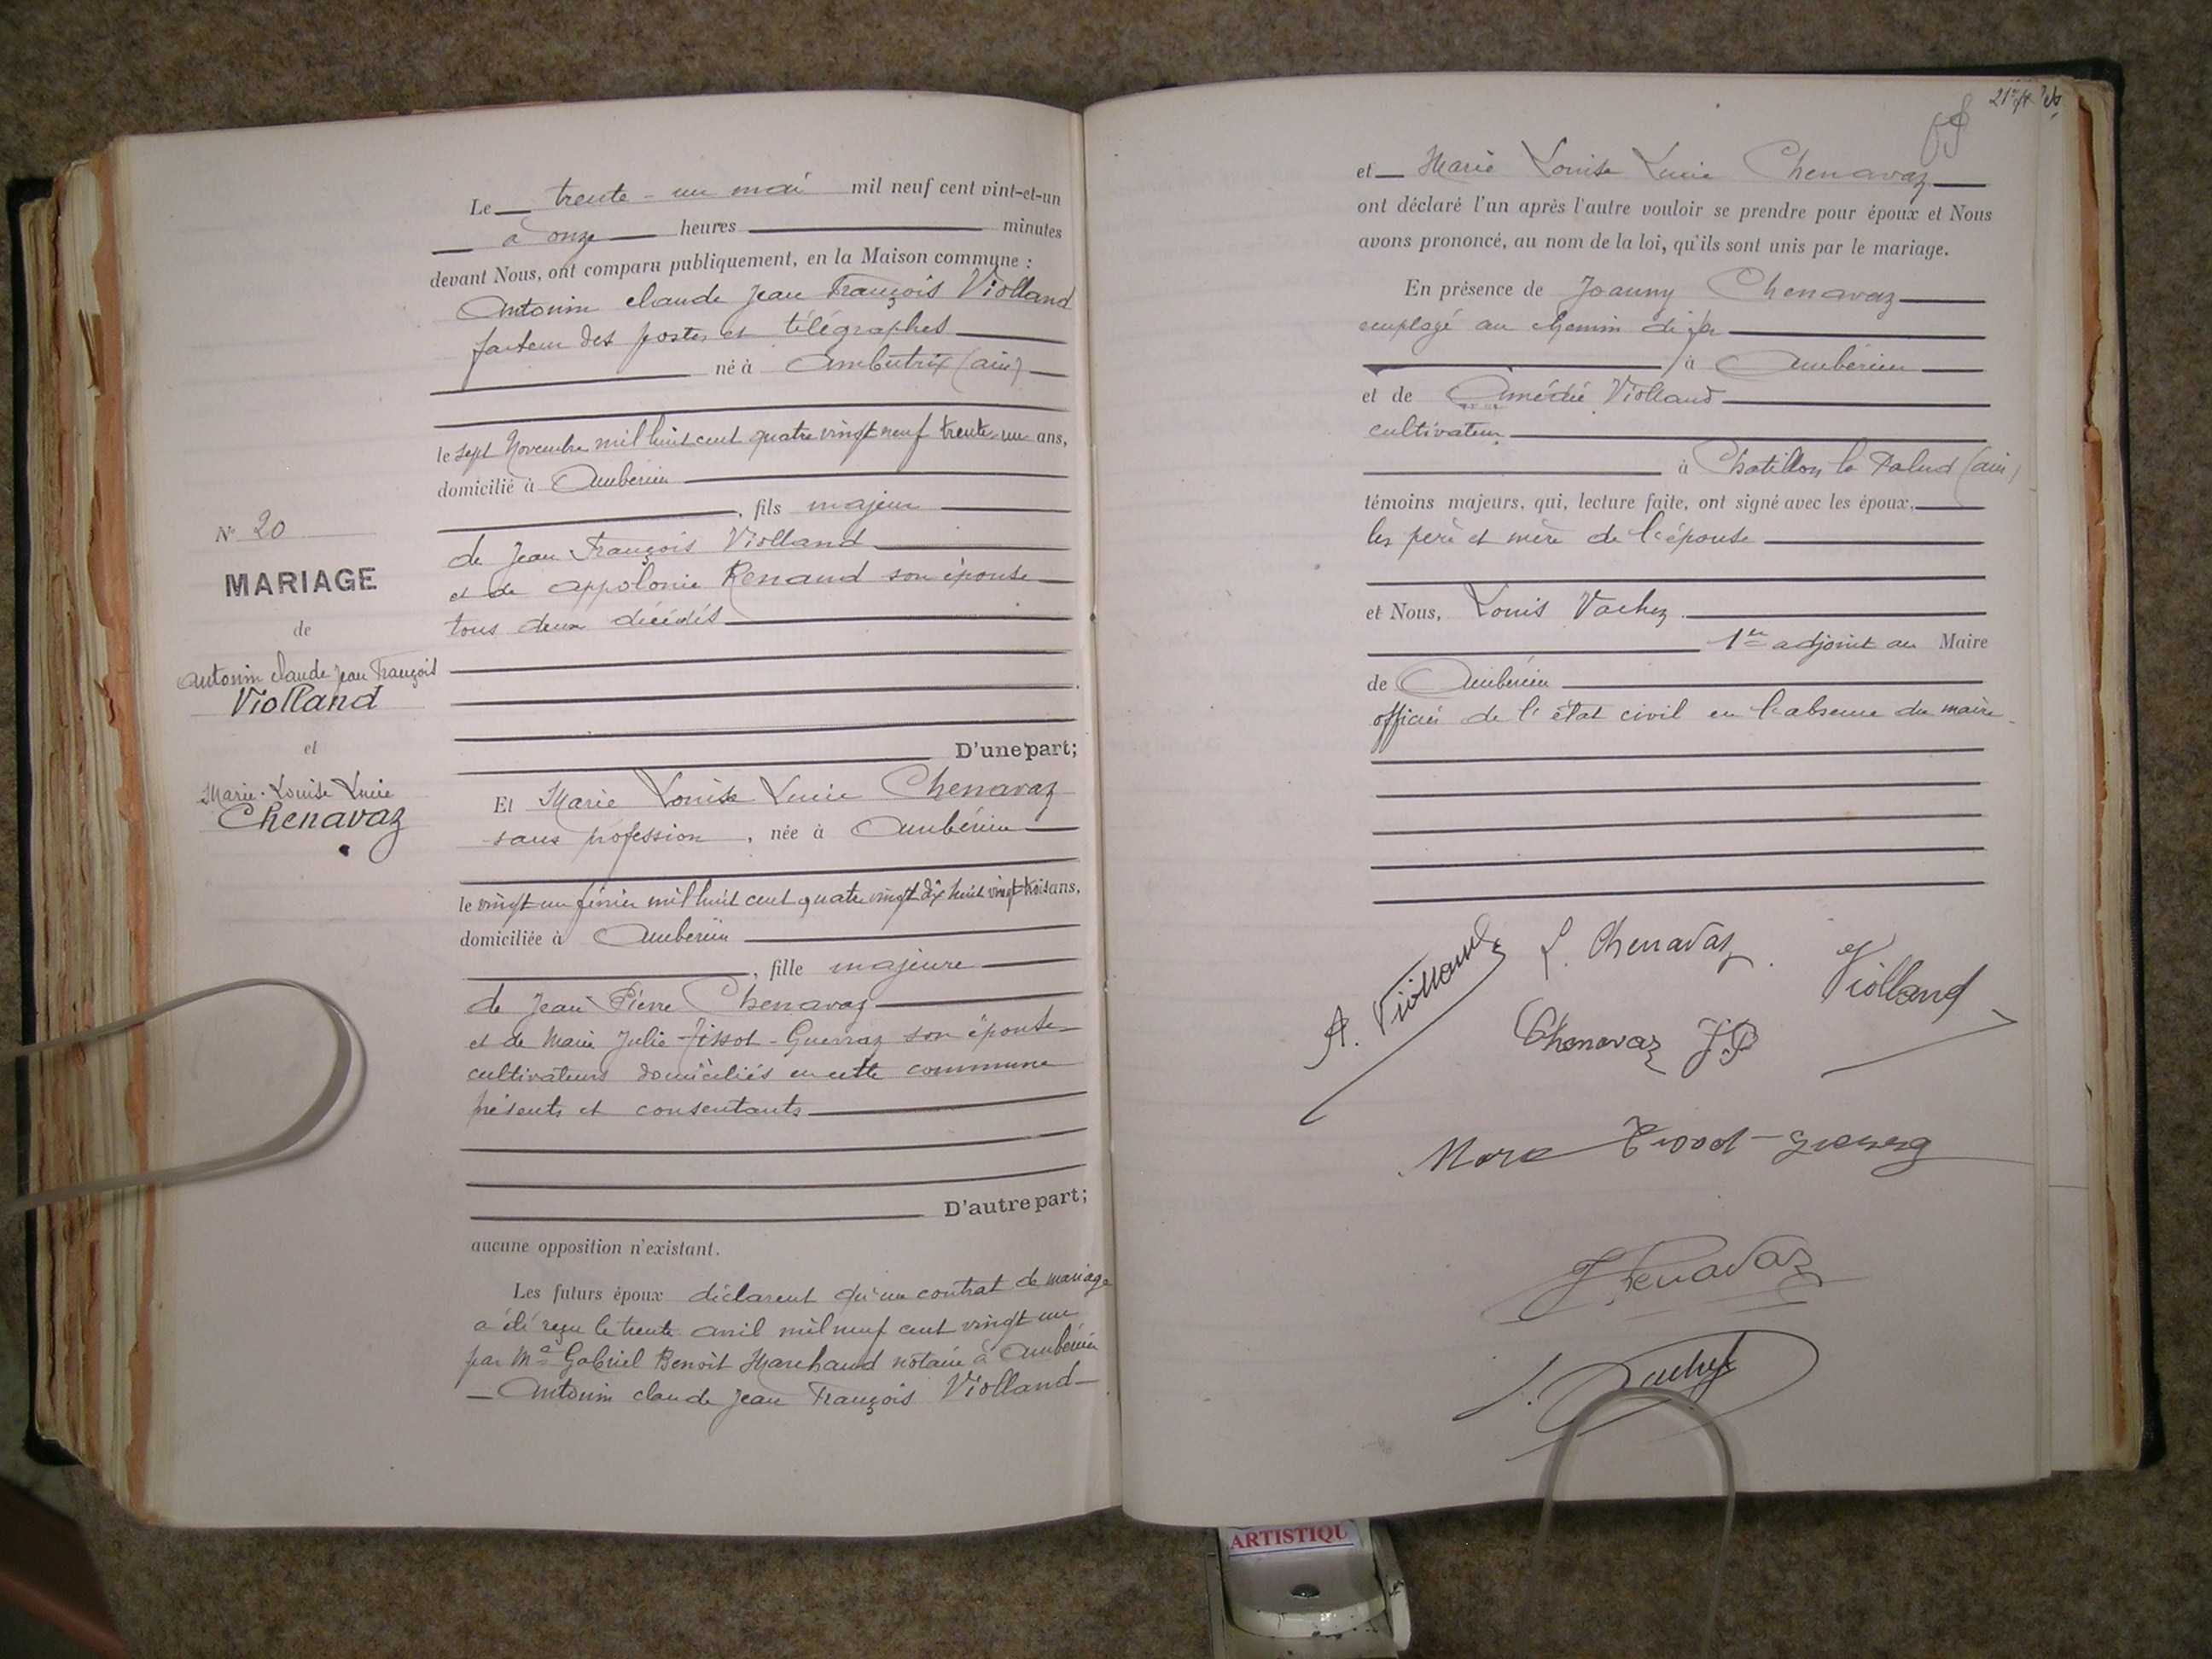 N° 20
MARIAGE
de
Antonin claude Jean François
Violland
et
Marie-Louise Lucie
Chenavaz
Le trente-un mai mil neuf cent vint-et-un
à onze heures minutes
devant Nous, ont comparu publiquement, en la Maison commune :
Antonin claude Jean François Violland
facteur des postes et télégraphes
né à Ambutrix (ain)
le sept Novembre mil huit cent quatre vingt neuf trente-un ans,
domicilié à Ambérieu
, fils majeur
de Jean François Violland
et de appolonie Renaud son épouse
tous deux décédés
D'une part;
Et Marie Louise Lucie Chenavaz
sans profession, née à Ambérieu
le vingt un février mil huit cent quatre vingt dix huit vingt-trois ans,
domiciliée à Ambérieu
, fille majeure
de Jean Pierre Chenavaz
et de Marie Julie Tissot-Guerraz son épouse
cultivateurs domiciliés en cette commune
présents et consentants
D'autre part;
aucune opposition n'existant.
Les futurs époux déclarent qu'un contrat de mariage
a été reçu le trente avril mil neuf cent vingt un
par Me Gabriel Benoit Marchand notaire à Ambérieu
Antonin claude Jean François Violland
et Marie Louise Lucie Chenavaz
ont déclaré l'un après l'autre vouloir se prendre pour époux et Nous
avons prononcé, au nom de la loi, qu'ils sont unis par le mariage.
En présence de Joanny Chenavaz
employé au chemin de fer
à Ambérieu
et de Amédée Violland
cultivateur
à Chatillon la Palud (ain)
témoins majeurs, qui, lecture faite, ont signé avec les époux,
les père et mère de l'épouse
et Nous, Louis Vachez
1er adjoint au Maire
de Ambérieu
officier de l'état civil en l'absence du maire
A. Violland L. Chenavaz Violland
Chenavaz J.P
J. Chenavaz
ARTISTIQU